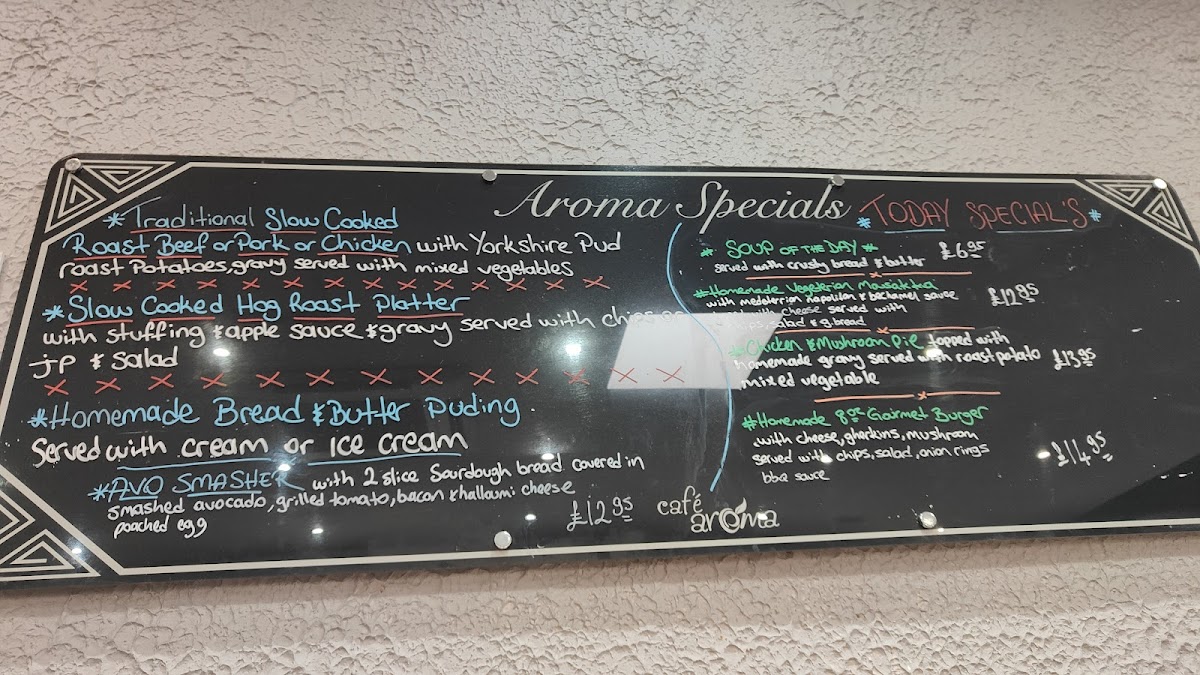 Aroma Specials
*Traditional Slow Cooked
Roast Beef or Pork or Chicken with Yorkshire Pud
roast Potatoes, gravy served with mixed vegetables
x x x x x x x x x x x x
*Slow Cooked Hog Roast Platter
with stuffing & apple sauce & gravy served with chips or
JP & Salad
x x x x x x x x x x x x x
*Homemade Bread & Butter Puding
Served with cream or Ice cream
*AVO SMASHER with 2 slice Sourdough bread covered in
smashed avocado, grilled tomato, bacon & halloumi cheese
poached egg £12.95
*TODAY SPECIAL'S*
*SOUP OF THE DAY* £6.95
served with crusty bread & butter
*Homemade Vegeterian
with & bechamel sauce £12.95
with cheese served with
chips, salad & g.bread
*Chicken & Mushroom Pie topped with
homemade gravy served with roast potato £13.95
mixed vegetable
*Homemade 8oz Gourmet Burger
with cheese, gherkins, mushroom
served with chips, salad, onion rings £14.95
bbq sauce
café
aroma